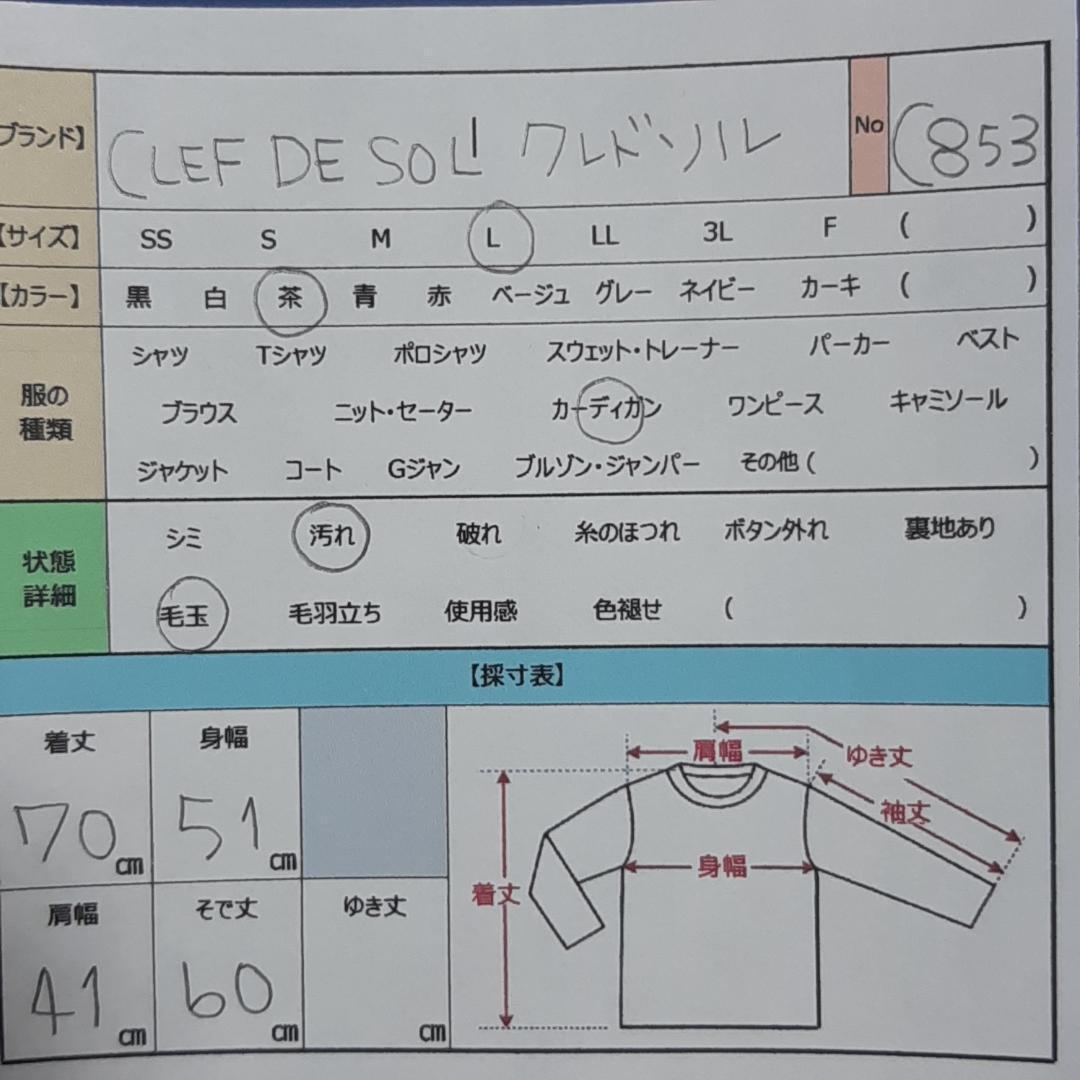 ブランド】 CLEF DE SOL クレドソル No (853
【サイズ】 SS S M L LL 3L F ( )
【カラー】 黒 白 茶 青 赤 ベージュ グレー ネイビー カーキ ( )
服の種類 シャツ Tシャツ ポロシャツ スウェット・トレーナー パーカー ベスト
ブラウス ニット・セーター カーディガン ワンピース キャミソール
ジャケット コート Gジャン ブルゾン・ジャンパー その他 ( )
状態詳細 シミ 汚れ 破れ 糸のほつれ ボタン外れ 裏地あり
毛玉 毛羽立ち 使用感 色褪せ ( )
【採寸表】
着丈 身幅
70cm 51cm
肩幅 そで丈 ゆき丈
41cm 60cm cm
肩幅 ゆき丈
袖丈
身幅
着丈